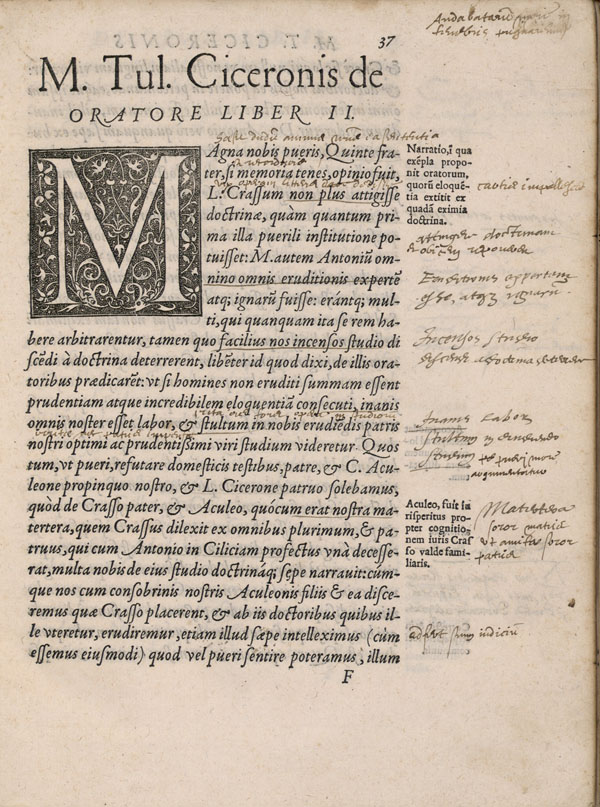 37
M. Tul. Ciceronis de
ORATORE LIBER II.
MAgna nobis pueris, Quinte fra-
ter, si memoria tenes, opinio fuit,
L. Crassum non plus attigisse
doctrinæ, quàm quantum pri-
ma illa puerili institutione po-
tuisset: M. autem Antoniũ om-
nino omnis eruditionis expertẽ
atq; ignarũ fuisse: erántq; mul-
ti, qui quanquam ita se rem ha-
bere arbitrarentur, tamen quo facilius nos incensos studio di-
scẽdi à doctrina deterrerent, libẽter id quod dixi, de illis ora-
toribus prædicarẽt: vt si homines non eruditi summam essent
prudentiam atque incredibilem eloquentiã consecuti, inanis
omnis noster esset labor, & stultum in nobis erudiẽdis patris
nostri optimi ac prudentissimi viri studium videretur. Quos
tum, vt pueri, refutare domesticis testibus, patre, & C. Acu-
leone propinquo nostro, & L. Cicerone patruo solebamus,
quòd de Crasso pater, & Aculeo, quocum erat nostra ma-
tertera, quem Crassus dilexit ex omnibus plurimum, & pa-
truus, qui cum Antonio in Ciliciam profectus vnà decesse-
rat, multa nobis de eius studio doctrináq; sępe narrauit: cúm-
que nos cum consobrinis nostris Aculeonis filiis & ea disce-
remus quæ Crasso placerent, & ab iis doctoribus quibus il-
le vteretur, erudiremur, etiam illud sæpe intelleximus (cùm
essemus eiusmodi) quod vel pueri sentire poteramus, illum
F
Narratio, ĩ qua
exẽpla propo-
nit oratorum,
quorũ eloquẽ-
tia extitit ex
quadã eximia
doctrina.
attingere doctrinam
Eruditionis expertem
esse, atq; ignarũ.
Incensos studio
Inanis labor
Aculeo, fuit iu
risperitus pro-
pter cognitio,
nem iuris Craf
so valde fami-
liaris.
Matertera
soror matris
vt amita soror
patris